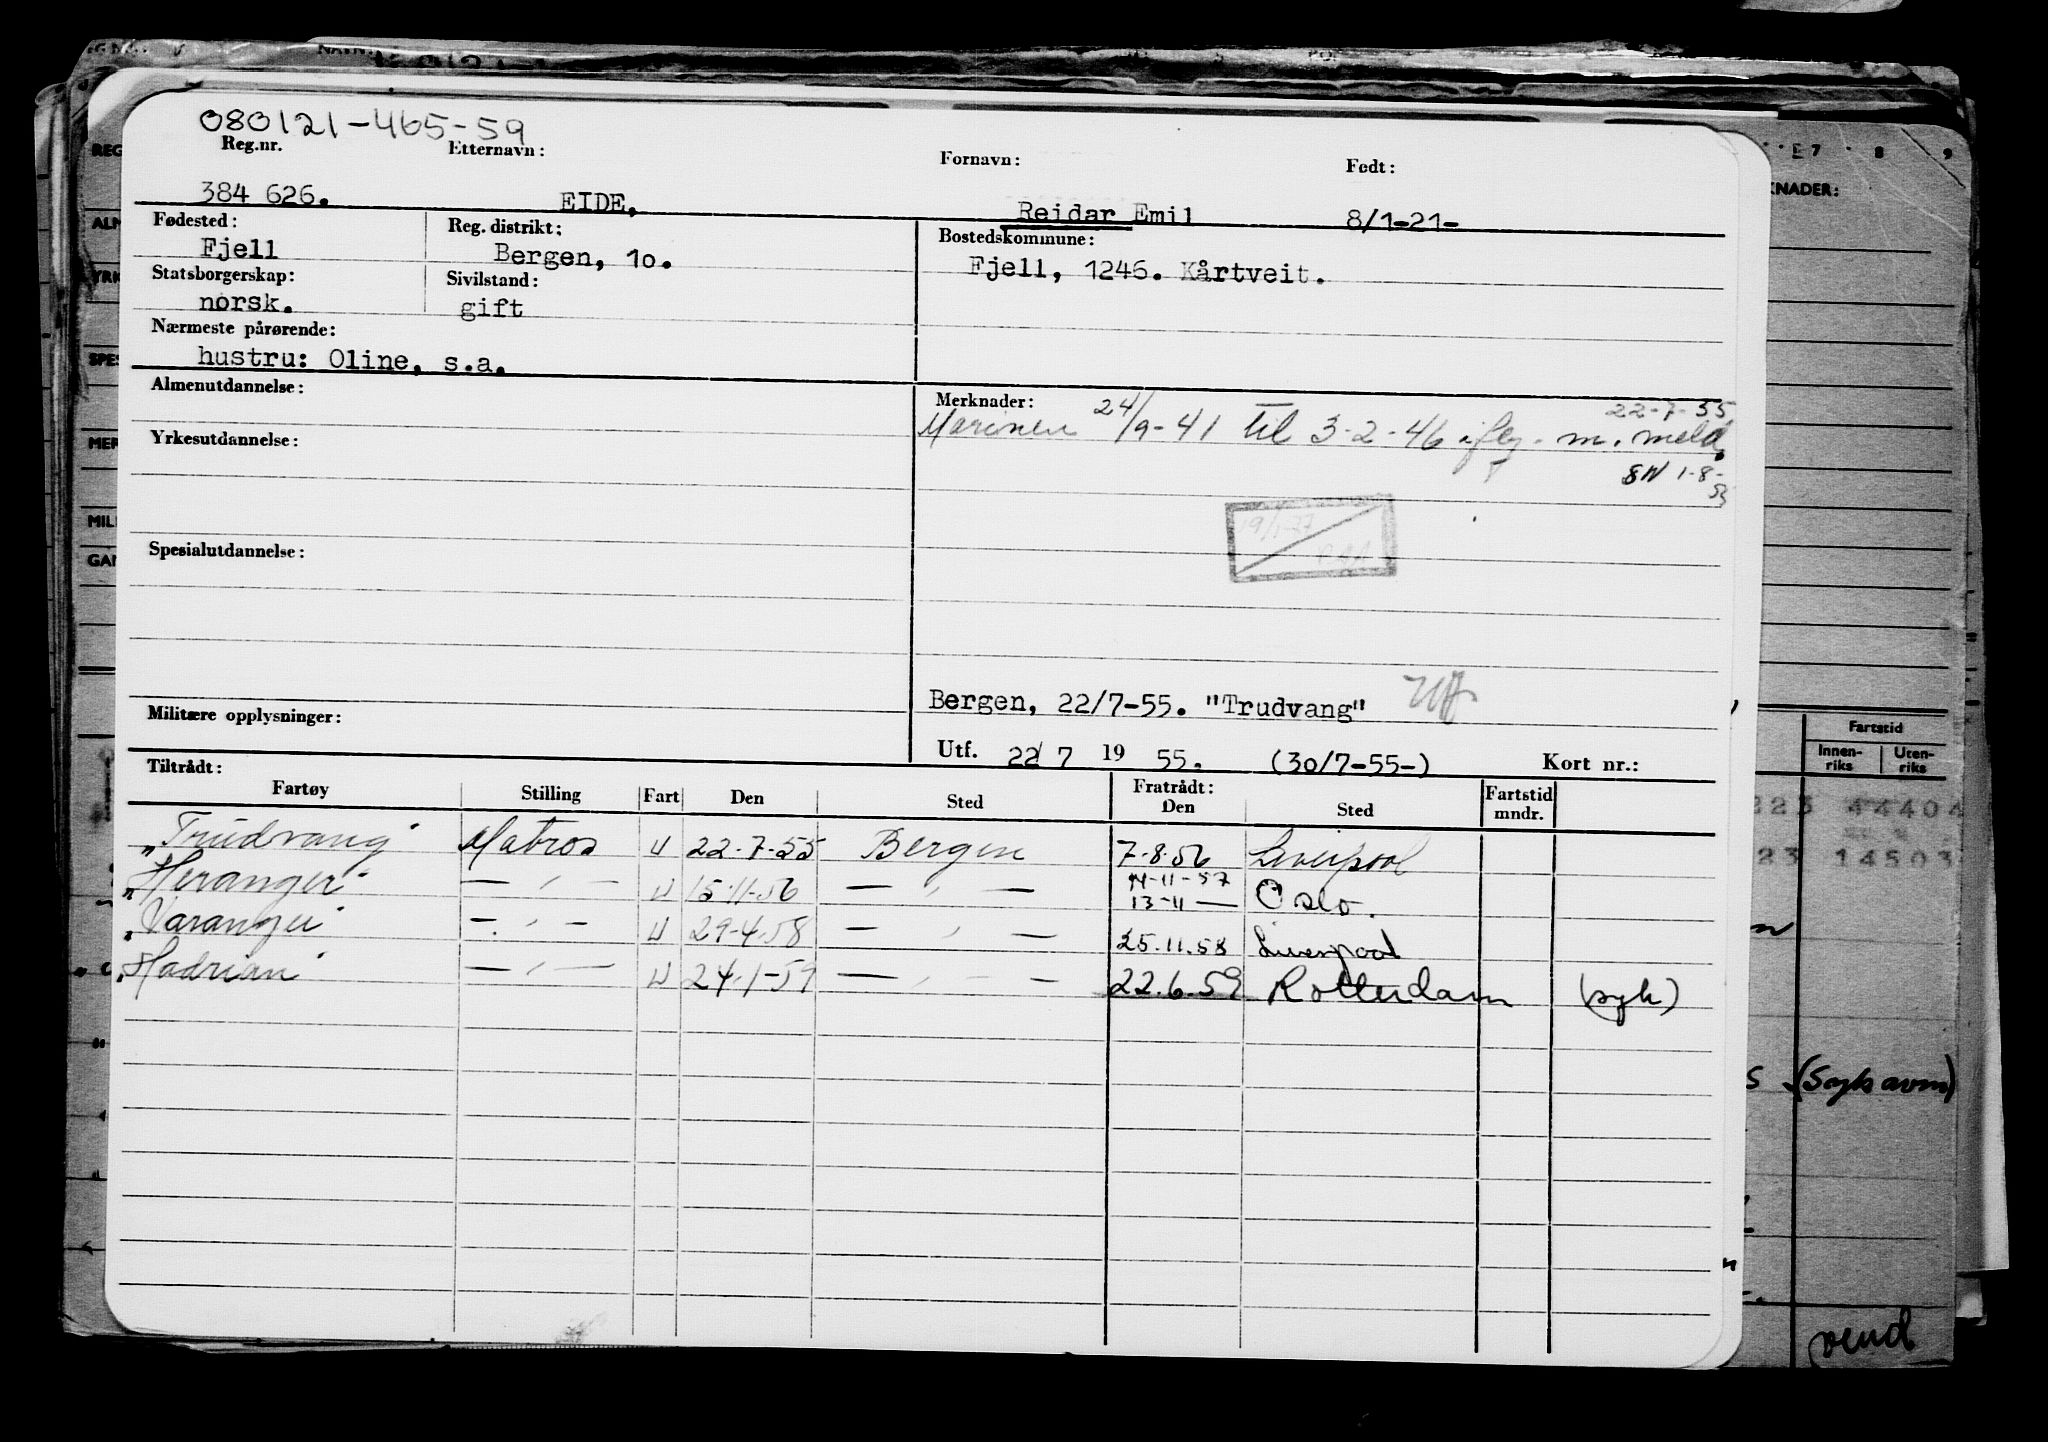 080121-465-59
Reg.nr. Etternavn: Fornavn: Født:
384 626. EIDE, Reidar Emil 8/1-21-
Fødested: Reg. distrikt: Bostedskommune:
Fjell Bergen, 10. Fjell, 1246. Kårtveit.
Statsborgerskap: Sivilstand:
norsk. gift
Nærmeste pårørende:
hustru: Oline, s.a.
Almenutdannelse: Merknader:
22-7-55
Marinen 24/9-41 til 3-2-46 m. meld.
Yrkesutdannelse:
SW 1-8-55
19/1-77
Spesialutdannelse:
Bergen, 22/7-55. "Trudvang"
Militære opplysninger:
Utf. 22/7 1955. (30/7-55-) Kort nr.:
Tiltrådt: Fratrådt: Fartstid
Fartøy Stilling Fart Den Sted Den Sted mndr.
"Trudvang" Matros U 22-7-55 Bergen 7-8-56 Liverpool
"Heranger" — " — U 15-11-56 — " — 14-11-57
13-11 — Oslo.
"Varanger" — " — U 29-4-58 — " — 25.11.58 Liverpool
"Hadrian" — " — U 24/1-59 — " — 22.6.59 Rotterdam (syk)
E7 8 9
Fartstid
Innen-
riks
Uten-
riks
44404
14503
(Syk avm)
vend